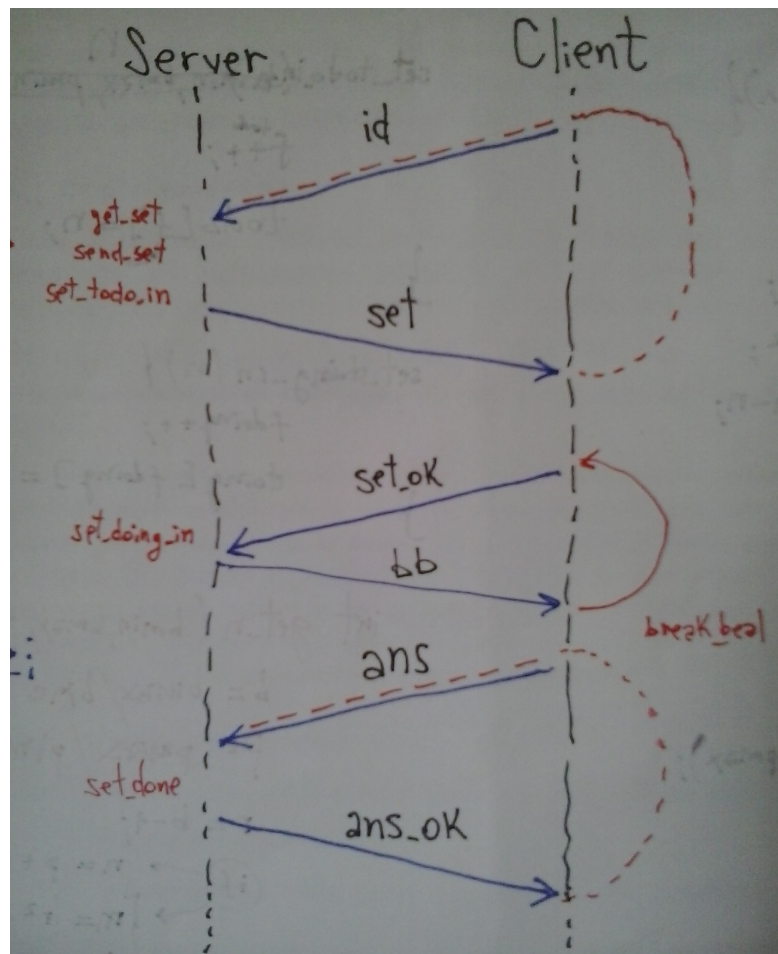 Server Client
id
get_set
send_set
set_todo_in
set
set_ok
set_doing_in
bb
break_beal
ans
set_done
ans_ok